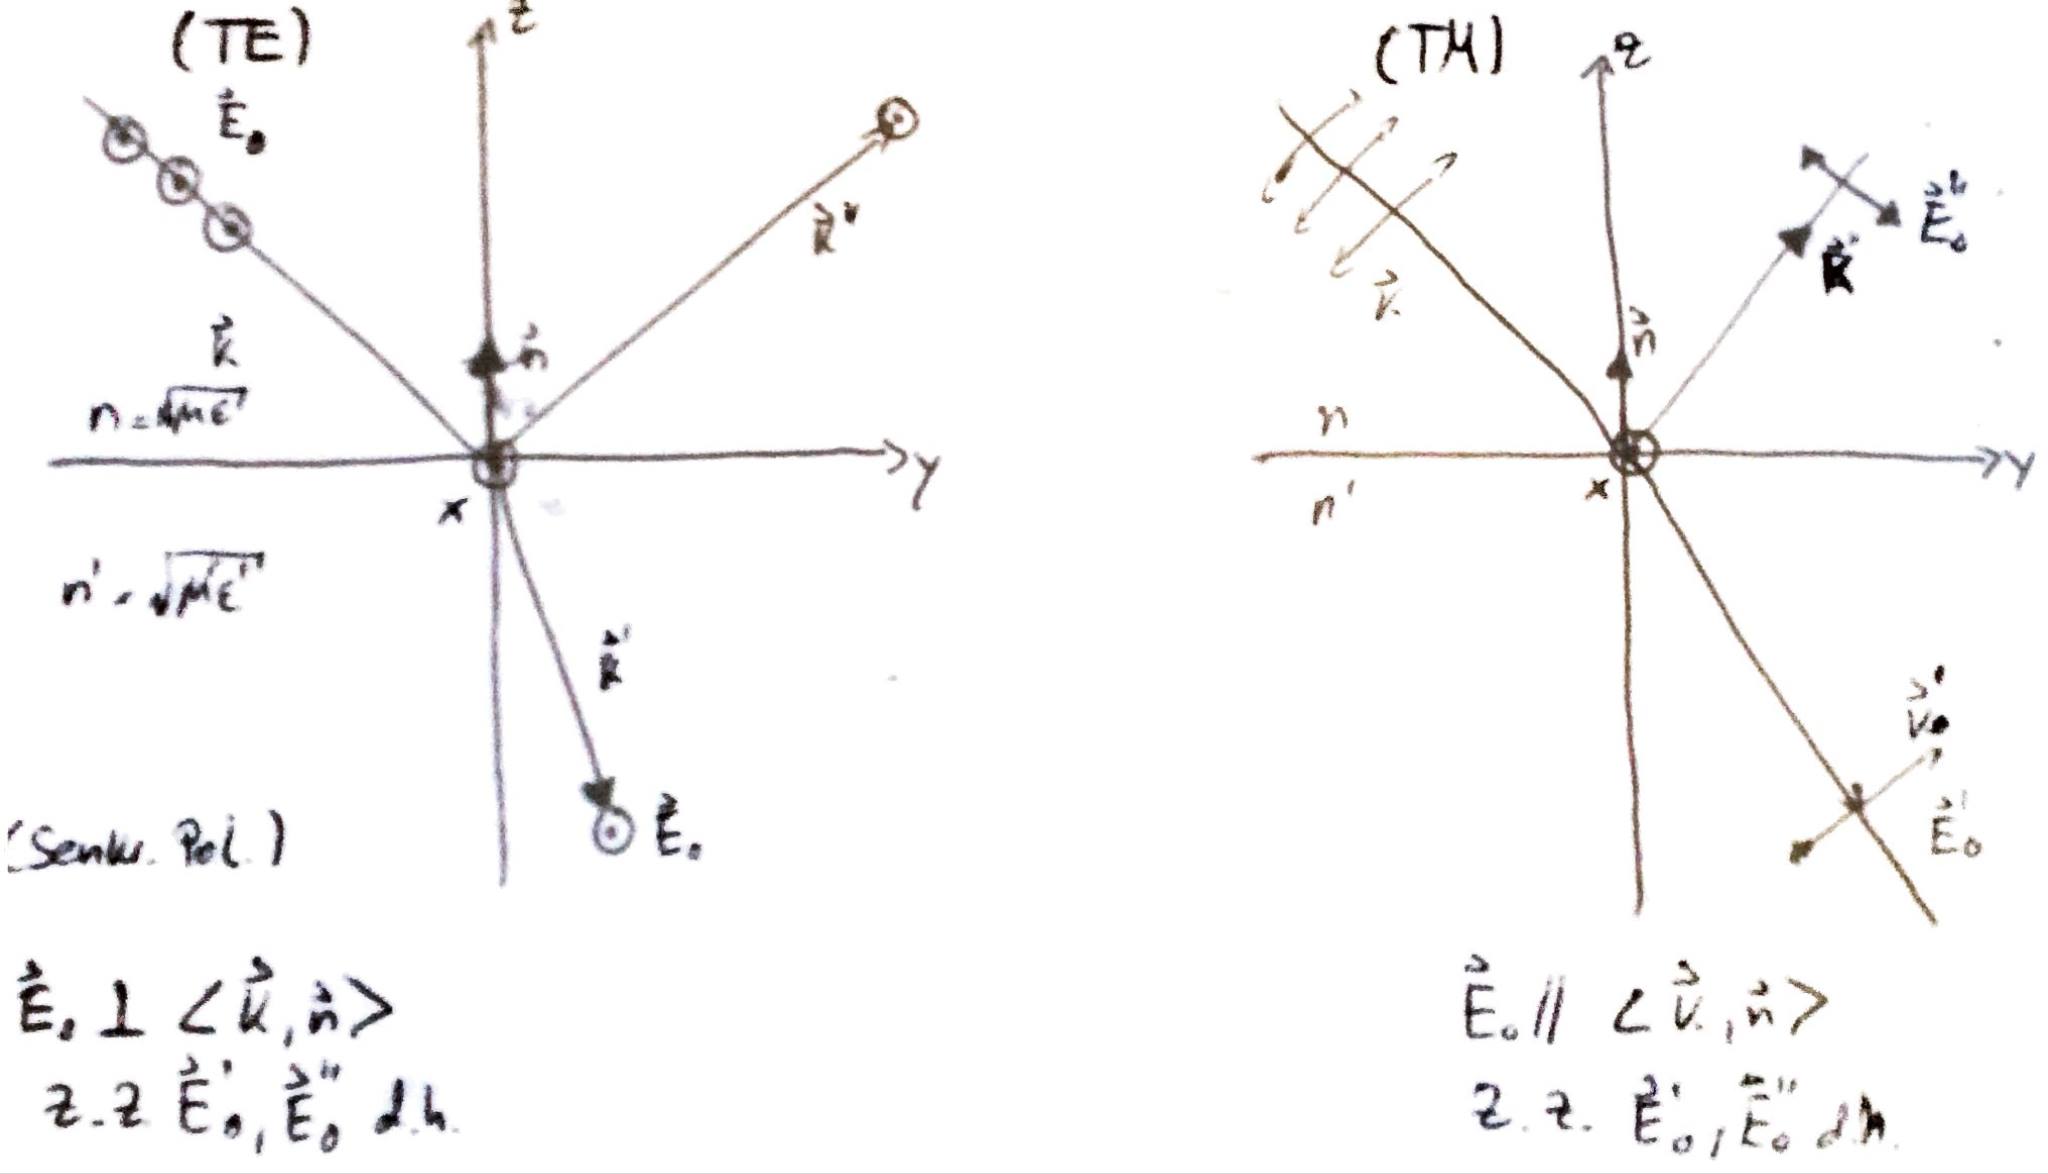 (TE)
z
E⃗₀
k⃗''
k⃗
n⃗
n = √με
y
x
n' = √μ'ε'
k⃗'
(Senkr. Pol.)
E⃗₀
E⃗₀ ⊥ <k⃗, n⃗>
z.z E⃗₀', E⃗₀'' d.h.
(TM)
z
E⃗₀''
k⃗
n⃗
n
y
x
n'
E⃗₀'
E⃗₀ ∥ <k⃗, n⃗>
z.z. E⃗₀', E⃗₀'' d.h.